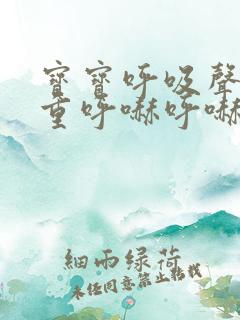 寶寶呼吸聲
重呼嚇呼嚇
細雨綠荷
未經同意禁止轉載